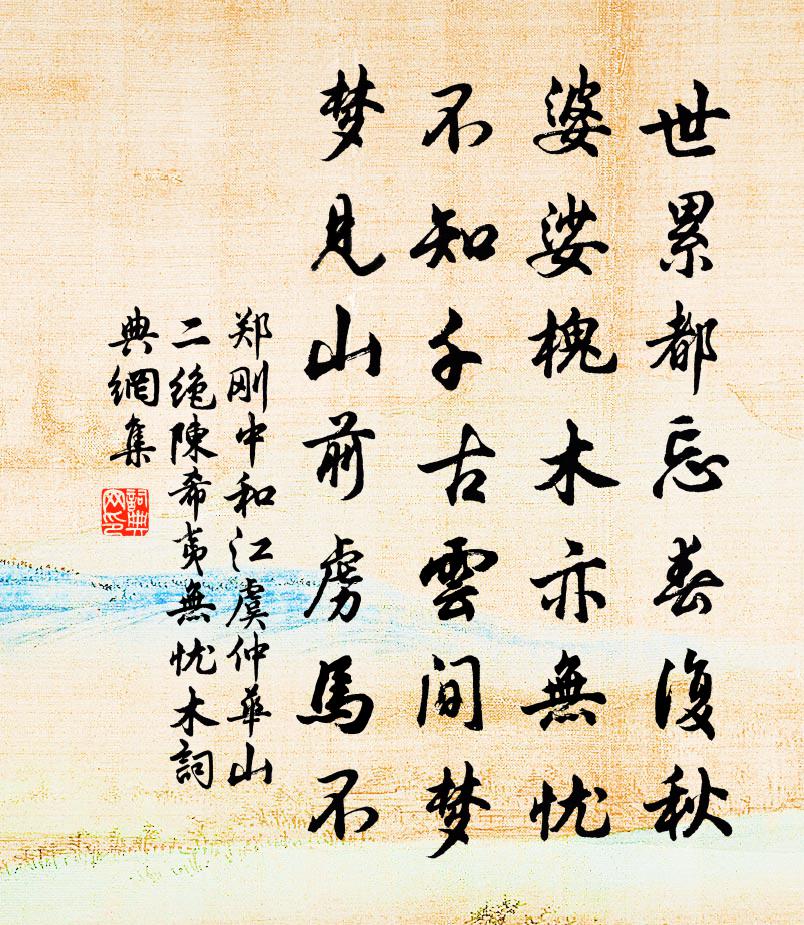 世累都忘春復秋
婆娑槐木亦無忧
不知千古雲间梦
梦見山前虏馬不
郑刚中和江虞仲華山
二绝陳希夷無忧木詞
典網集
詞典网印